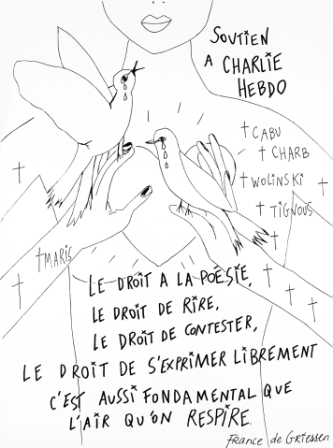 SOUTIEN
A CHARLIE
HEBDO
† CABU
† CHARB
† WOLINSKI
† TIGNOUS
† MARIS
LE DROIT A LA POÉSIE,
LE DROIT DE RIRE,
LE DROIT DE CONTESTER,
LE DROIT DE S'EXPRIMER LIBREMENT
C'EST AUSSI FONDAMENTAL QUE
L'AIR QU'ON RESPIRE.
France de Griessen